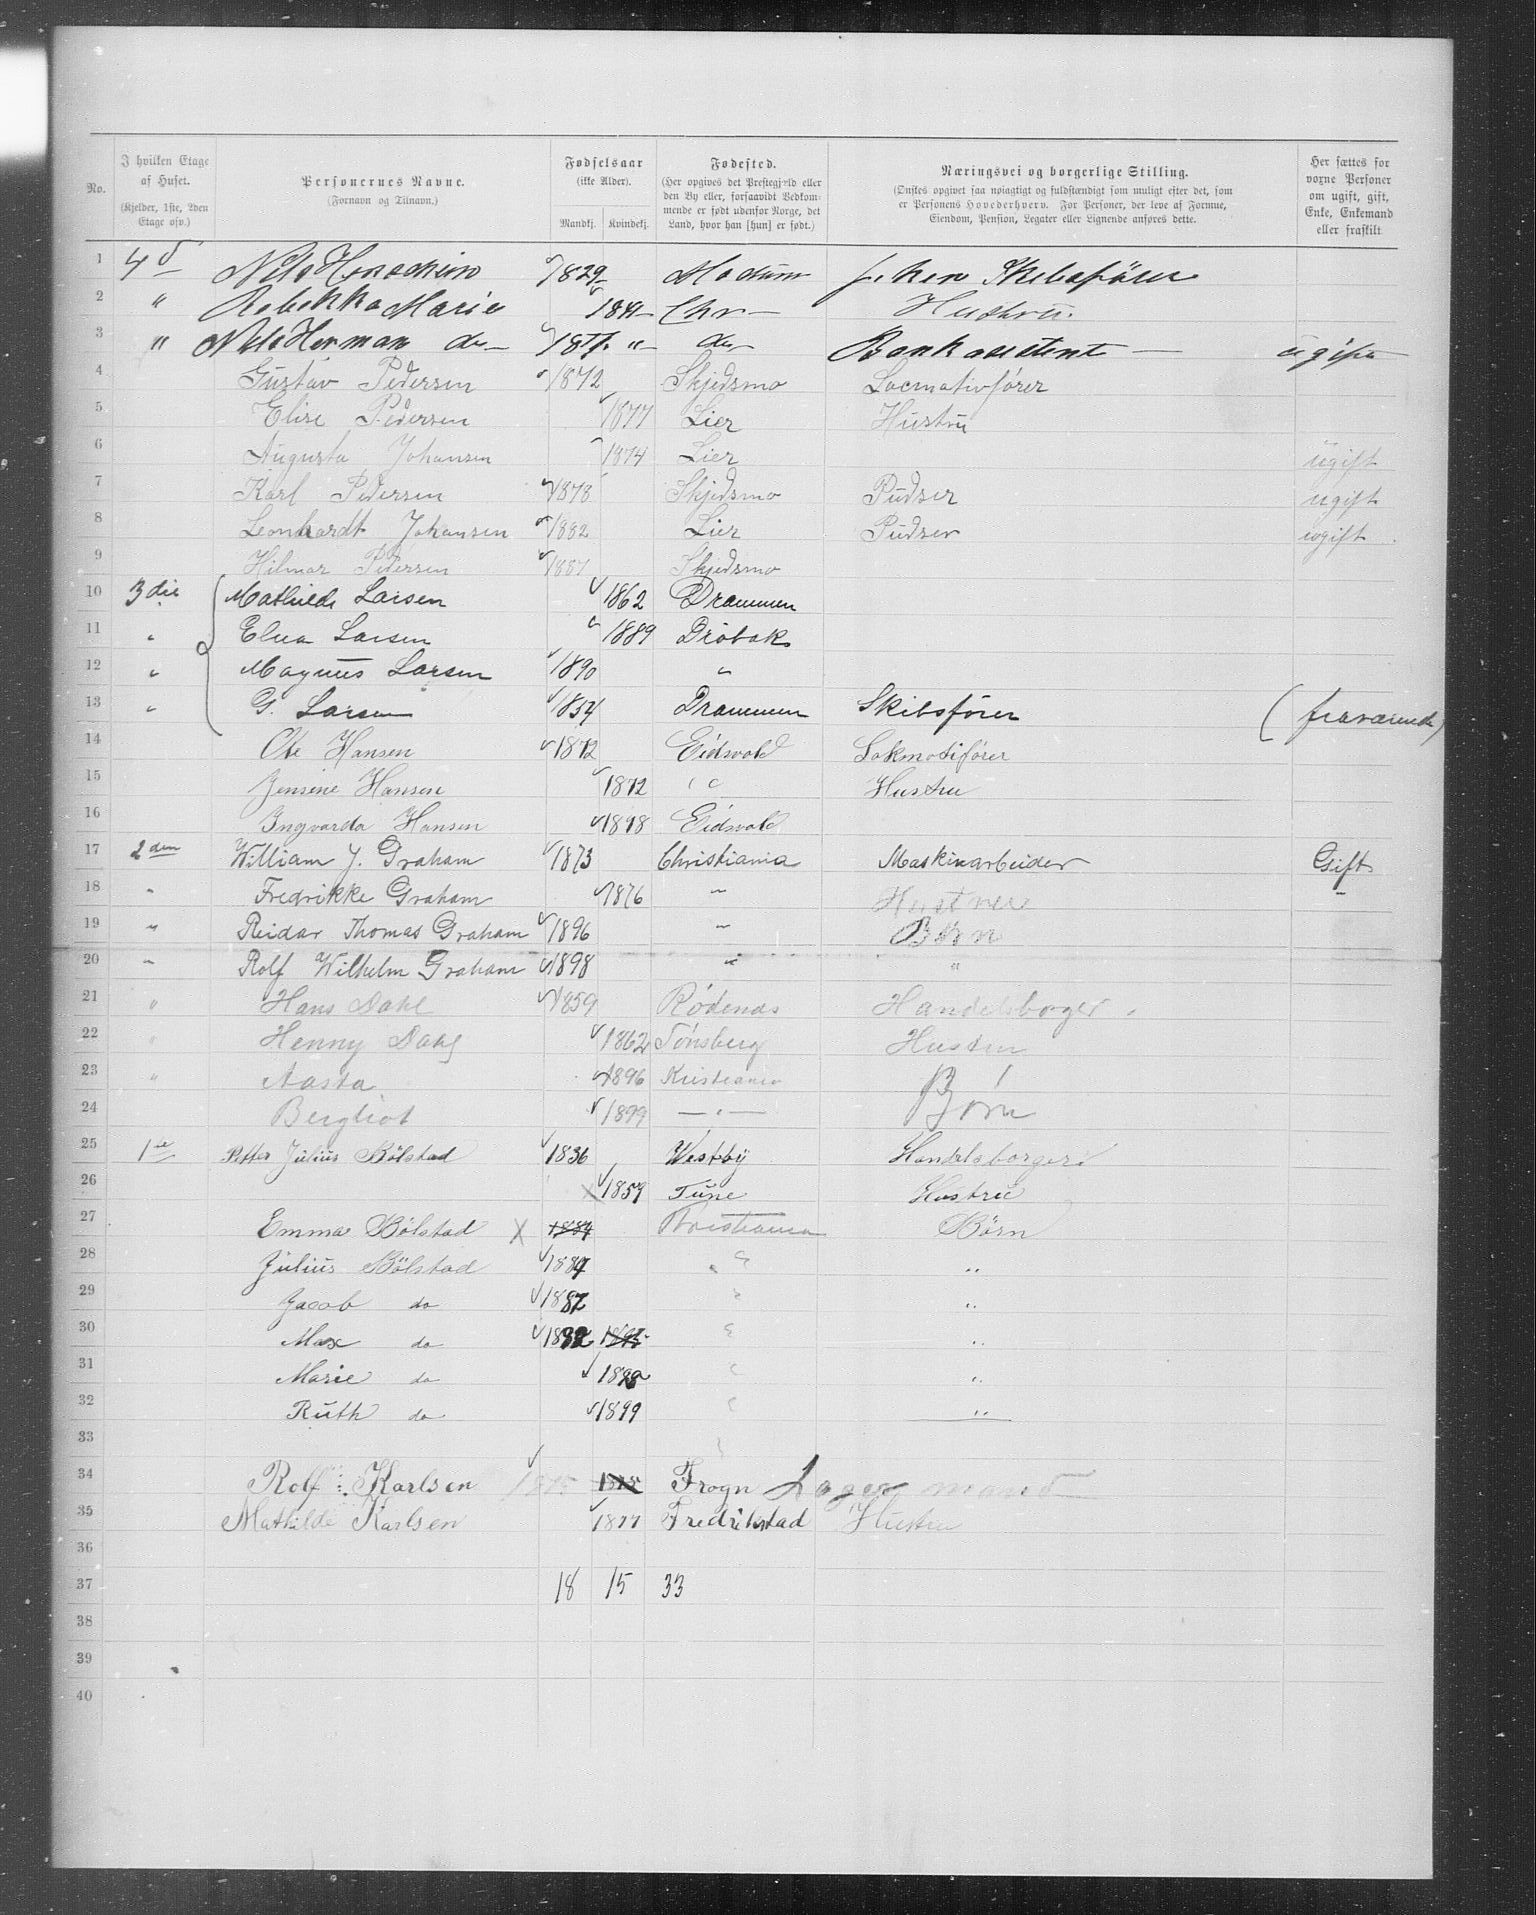 No. | I hvilken Etage af Huset. (Kjelder, 1ste, 2den Etage osv.) | Personernes Navne. (Fornavn og Tilnavn.) | Fødselsaar (ikke Alder). Mandkj. Kvindekj. | Fødested. (Her opgives det Prestegjeld eller den By eller, forsaavidt Vedkommende er født udenfor Norge, det Land, hvor han [hun] er født.) | Næringsvei og borgerlige Stilling. (Ønskes opgivet saa nøiagtigt og fuldstændigt som muligt efter det, som er Personens Hovederhverv. For Personer, der leve af Formue, Eiendom, Pension, Legater eller Lignende anføres dette.) | Her sættes for voxne Personer om ugift, gift, Enke, Enkemand eller fraskilt
1 4d Nils 1829 Modum Skibsfører
2 " Rebekka Marie Chr Hustru.
3 " Nils Herman do do Bankasistent ugift
4 Gustav Pedersen 1872 Skjedsmo Locmativfører
5 Elise Pedersen 1877 Lier Hustru
6 Augusta Johansen 1874 Lier ugift
7 Karl Pedersen 1878 Skjedsmo Pudser ugift
8 Leonhardt Johansen 1882 Lier Pudser ugift
9 Hilmar Pedersen 1887 Skjedsmo
10 3die Mathilde Larsen 1862 Drammen
11 " Elna Larsen 1889 Drøbak
12 " Magnus Larsen 1890 "
13 " G. Larsen 1854 Drammen Skibsfører (fraværende)
14 Ole Hansen 1872 Eidsvold Lokmotifører
15 Jensine Hansen 1872 " Hustru
16 Ingvarda Hansen 1898 Eidsvold
17 2den William J. Graham 1873 Christiania Maskinarbeider Gift
18 " Fredrikke Graham 1876 " "
19 " Reidar Thomas Graham 1896 " Børn
20 " Rolf Wilhelm Graham 1898 " "
21 " Hans Dahl 1859 Rødenæs Handelsborger
22 " Henny Dahl 1862 Tønsberg Hustru
23 " Aasta 1896 Kristiania Børn
24 Bergliot 1899 — " —
25 1ste Petter Julius Bølstad 1836 Westby Handelsborger
26 1857 Tune Hustru
27 Emma Bølstad X 1884 Kristiania Børn
28 Julius Bølstad 1884 " "
29 Jacob do 1887 " "
30 Max do 1892 " "
31 Marie do 1898 " "
32 Ruth do 1899 " "
33
34 Rolf Karlsen 1875 1875 Frogn Lagermand
35 Mathilde Karlsen 1877 Fredrikstad Hustru
36
37 18 15 33
38
39
40